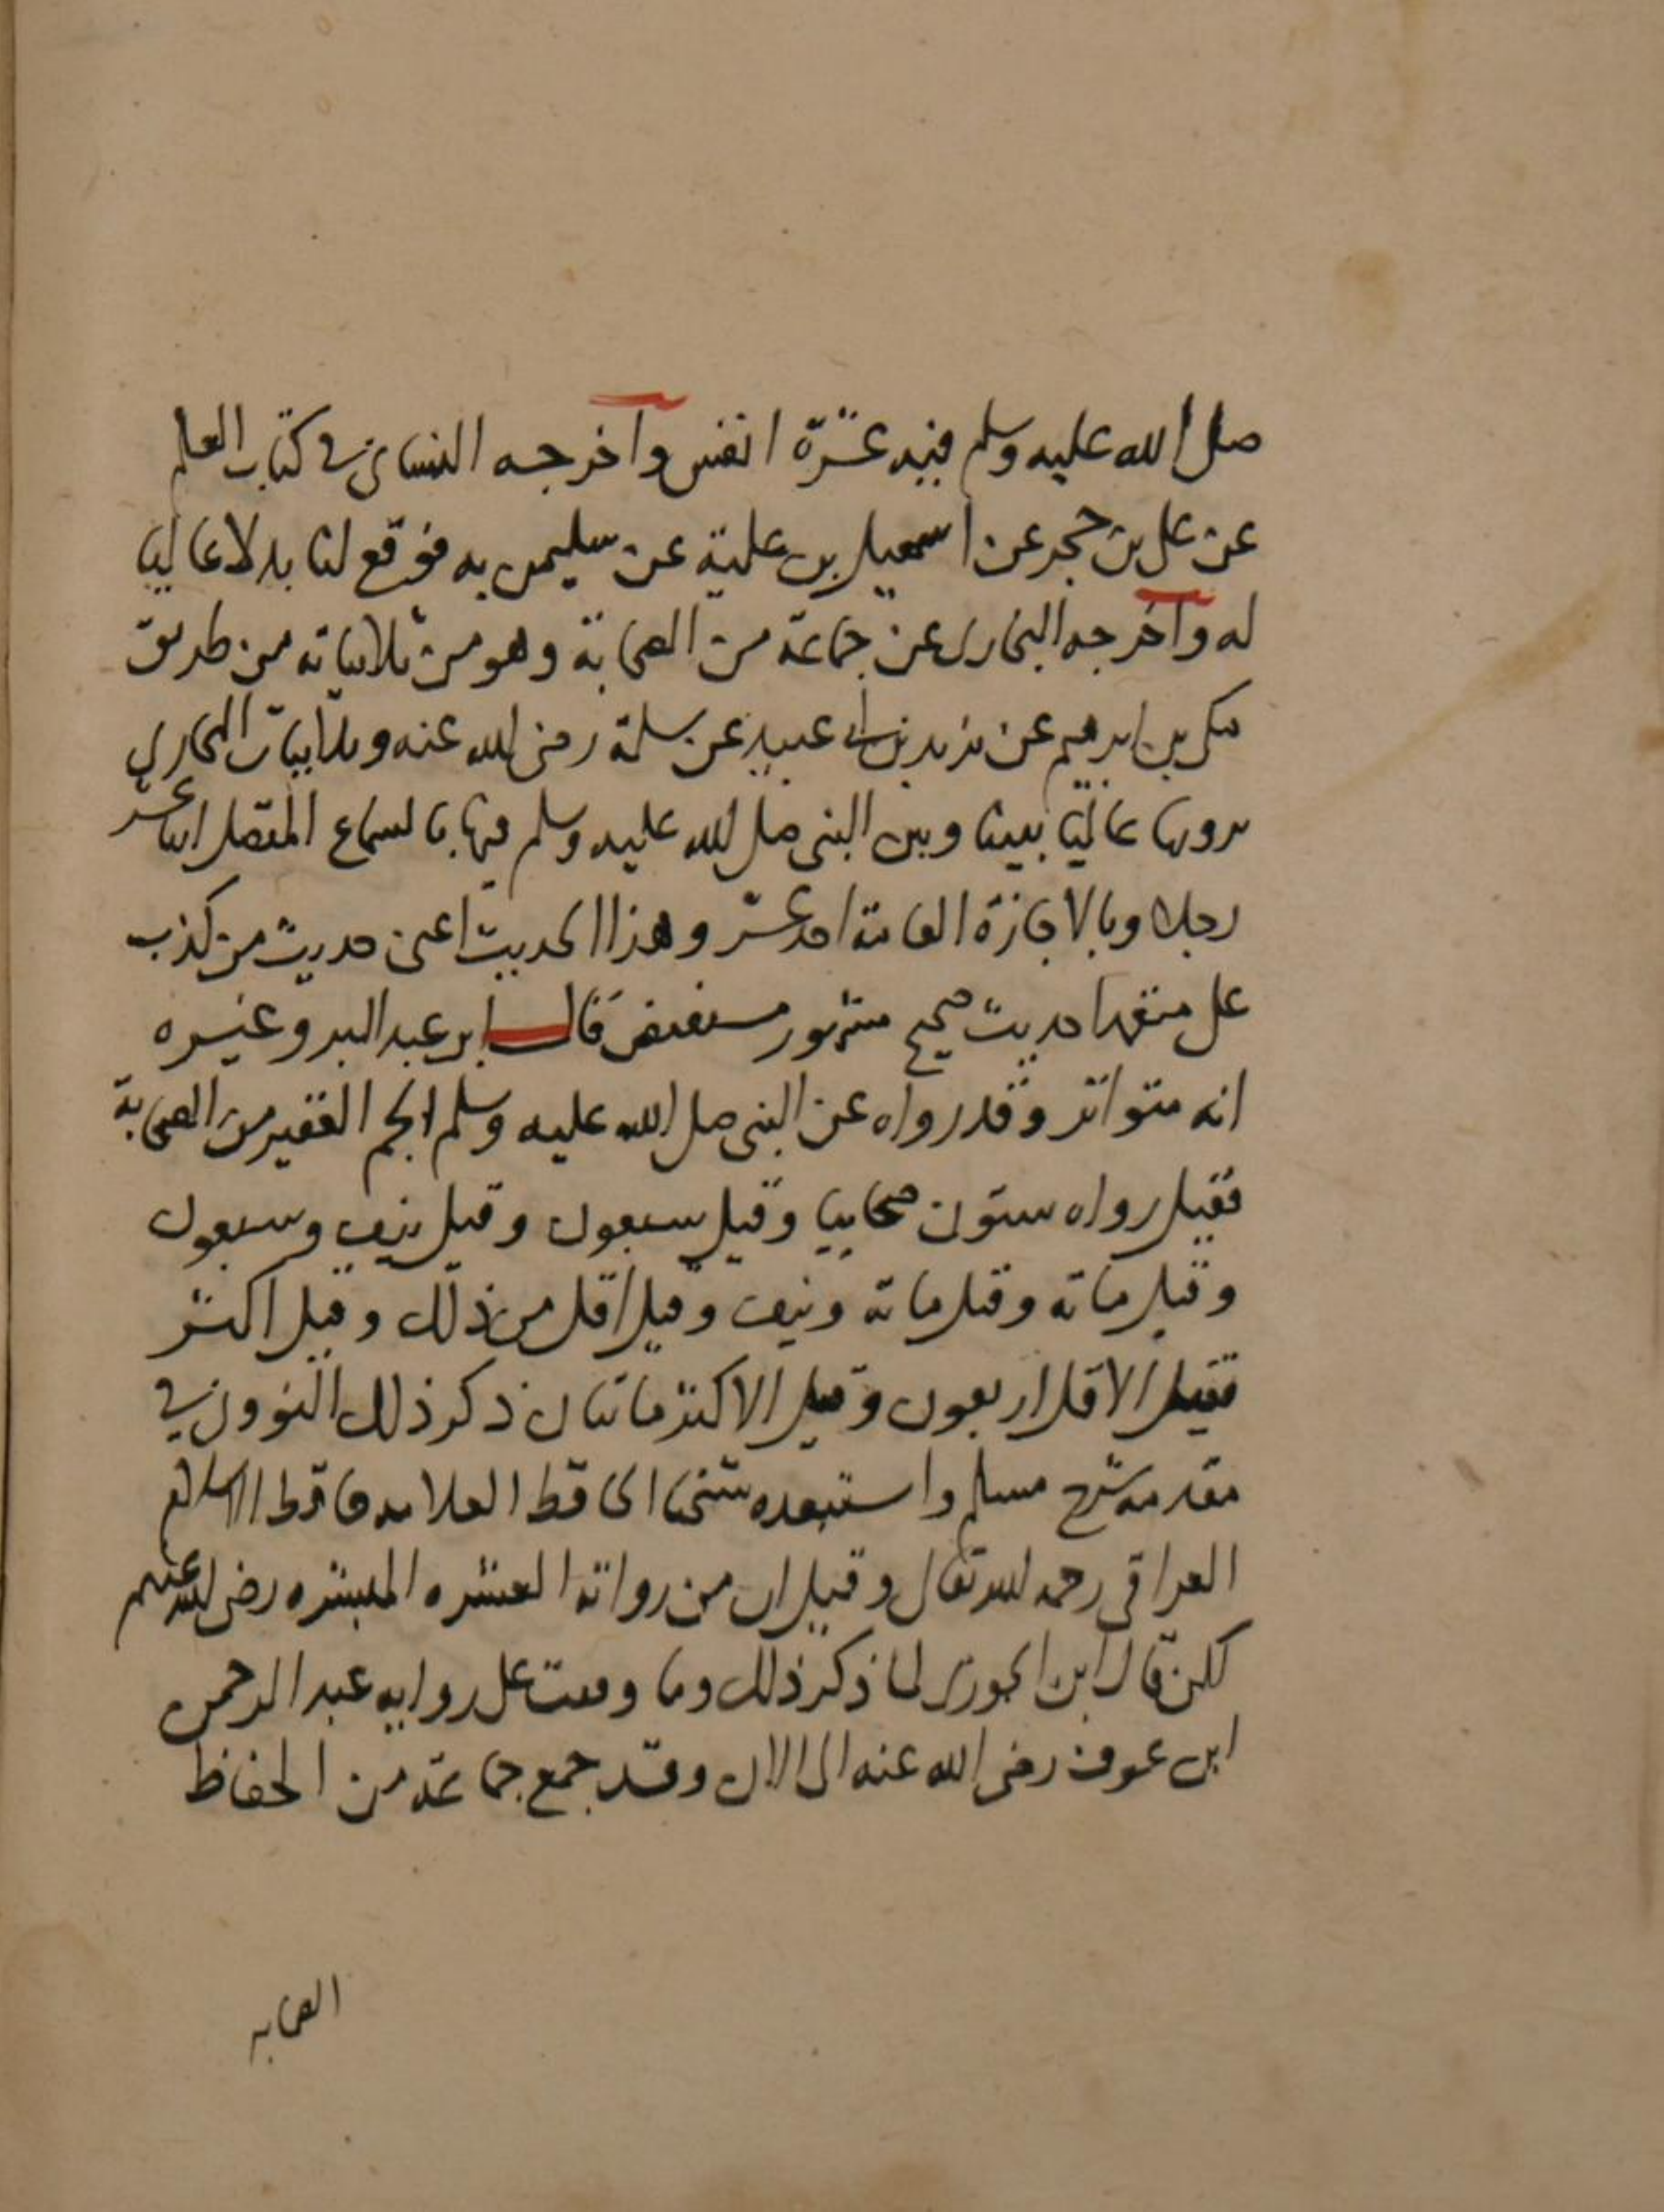 صلى الله عليه وسلم فيه عشرة انفس وأخرجه النسائى فى كتاب العلم
عن على بن حجر عن اسمعيل بن علية عن سليمن به فوقع لنا بدلا عاليا
له وأخرجه البخارى عن جماعة من الصحابة وهو من ثلاثياته من طريق
مكى بن ابرهيم عن يزيد بن ابى عبيد عن سلمة رضى الله عنه وثلاثيات البخارى
نرويها عاليا بيننا وبين النبى صلى الله عليه وسلم فيها بالسماع المتصل اثنا عشر
رجلا وبالاجازة العامة احد عشر وهذا الحديث اعنى حديث من كذب
على متعمدا حديث صحيح مشهور مستفيض قال ابن عبد البر وغيره
انه متواتر وقد رواه عن النبى صلى الله عليه وسلم الجم الغفير من الصحابة
فقيل رواه ستون صحابيا وقيل سبعون وقيل نيف وسبعون
وقيل مائة وقيل مائة ونيف وقيل اقل من ذلك وقيل اكثر
فقيل الاقل اربعون وقيل الاكثر مائتان ذكر ذلك النووى فى
مقدمة شرح مسلم واستبعده شيخنا الحافظ العلامة حافظ الاسلام
العراقى رحمه الله تعالى وقيل ان من رواته العشره المبشره رضى الله عنهم
لكن قال ابن الجوزى لما ذكر ذلك وما وقعت على رواية عبد الرحمن
ابن عوف رضى الله عنه الى الان وقد جمع جماعة من الحفاظ
الصحابه